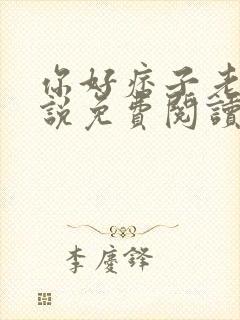 你好痞子老
說免費閱讀
李慶鋒